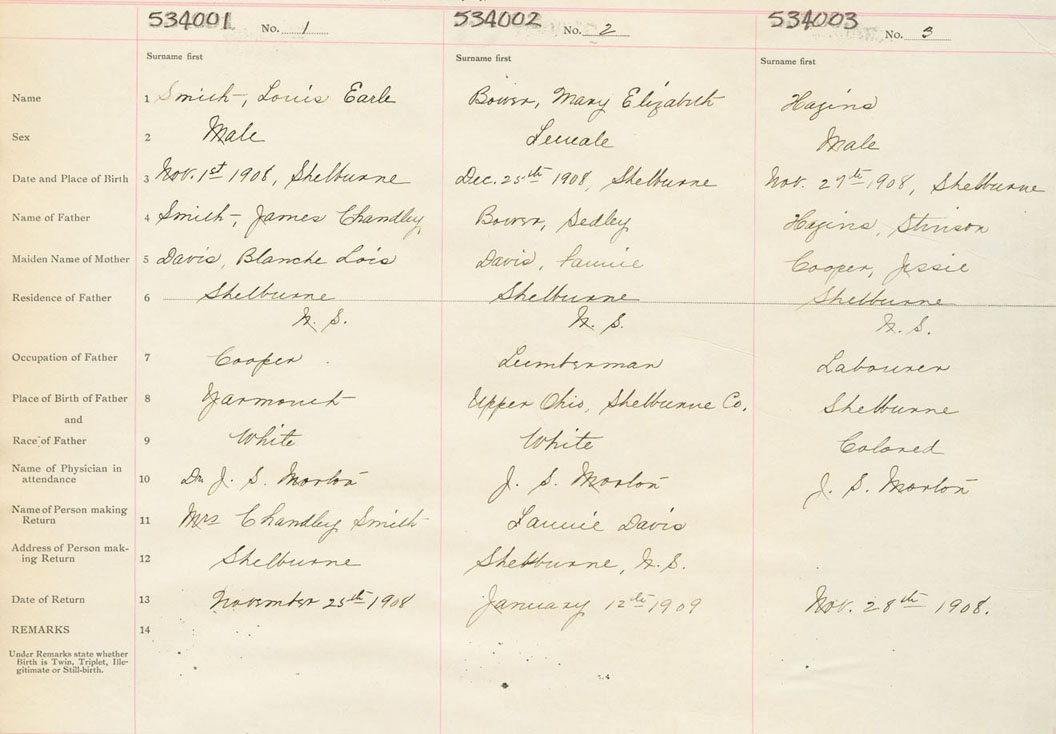 534001 No. 1 534002 No. 2 534003 No. 3
Surname first Surname first Surname first
Name 1 Smith, Louis Earle Bower, Mary Elizabeth Hagins
Sex 2 Male Female Male
Date and Place of Birth 3 Nov. 1st 1908, Shelburne Dec. 25th 1908, Shelburne Nov. 27th 1908, Shelburne
Name of Father 4 Smith, James Chandley Bower, Sedley Hagins, Stinson
Maiden Name of Mother 5 Davis, Blanche Lois Davis, Fannie Cooper, Jessie
Residence of Father 6 Shelburne Shelburne Shelburne
N. S. N. S. N. S.
Occupation of Father 7 Cooper Lumberman Labourer
Place of Birth of Father 8 Yarmouth Upper Ohio, Shelburne Co. Shelburne
and
Race of Father 9 White White Colored
Name of Physician in
attendance 10 Dr J. S. Morton J. S. Morton J. S. Morton
Name of Person making
Return 11 Mrs Chandley Smith Fannie Davis
Address of Person mak-
ing Return 12 Shelburne Shelburne, N. S.
Date of Return 13 November 25th 1908 January 12th 1909 Nov. 28th 1908.
REMARKS 14
Under Remarks state whether
Birth is Twin, Triplet, Ille-
gitimate or Still-birth.